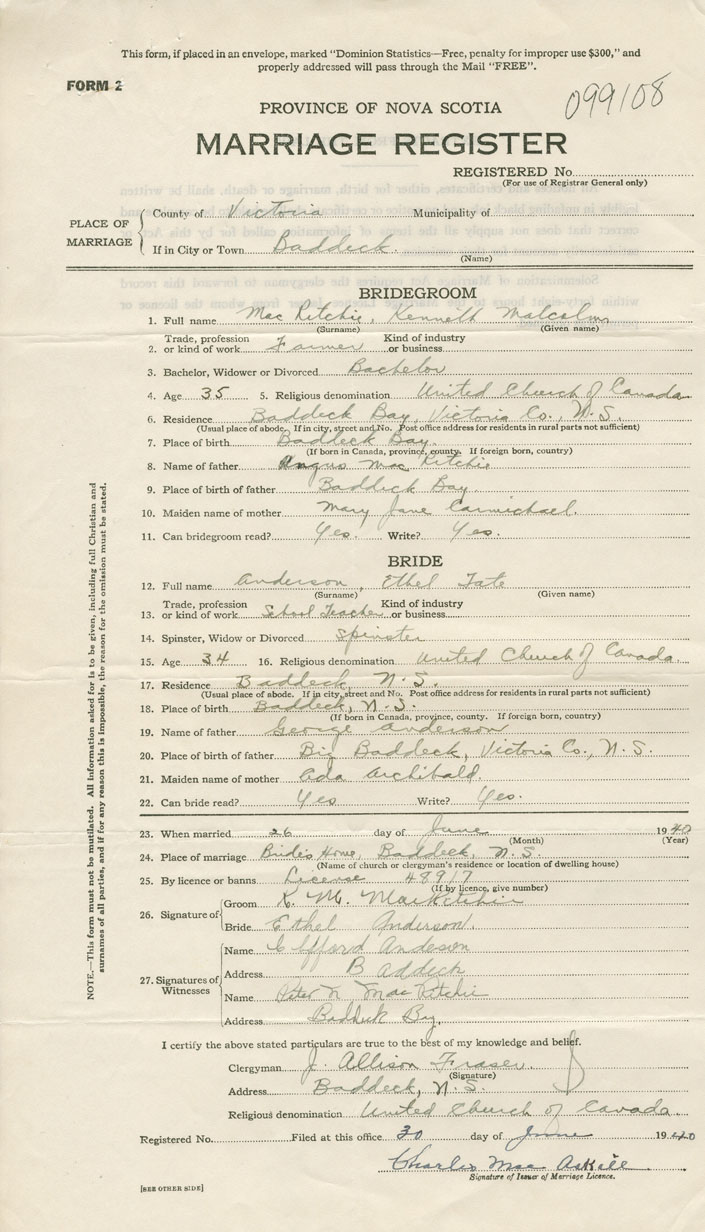 This form, if placed in an envelope, marked "Dominion Statistics—Free, penalty for improper use $300," and
properly addressed will pass through the Mail "FREE".
FORM 2
099108
PROVINCE OF NOVA SCOTIA
MARRIAGE REGISTER
REGISTERED No.
(For use of Registrar General only)
PLACE OF MARRIAGE
County of Victoria Municipality of
If in City or Town Baddeck.
(Name)
BRIDEGROOM
1. Full name MacRitchie, Kenneth Malcolm
(Surname) (Given name)
2. Trade, profession or kind of work Farmer Kind of industry or business
3. Bachelor, Widower or Divorced Bachelor
4. Age 35 5. Religious denomination United Church of Canada
6. Residence Baddeck Bay, Victoria Co., N.S.
(Usual place of abode. If in city, street and No. Post office address for residents in rural parts not sufficient)
7. Place of birth Baddeck Bay.
(If born in Canada, province, county. If foreign born, country)
8. Name of father Angus MacRitchie
9. Place of birth of father Baddeck Bay
10. Maiden name of mother Mary Jane Carmichael.
11. Can bridegroom read? Yes. Write? Yes.
BRIDE
12. Full name Anderson, Ethel Tate
(Surname) (Given name)
13. Trade, profession or kind of work School Teacher Kind of industry or business
14. Spinster, Widow or Divorced Spinster
15. Age 34 16. Religious denomination United Church of Canada.
17. Residence Baddeck N.S.
(Usual place of abode. If in city, street and No. Post office address for residents in rural parts not sufficient)
18. Place of birth Baddeck, N.S.
(If born in Canada, province, county. If foreign born, country)
19. Name of father George Anderson
20. Place of birth of father Big Baddeck, Victoria Co., N.S.
21. Maiden name of mother Ada Archibald.
22. Can bride read? Yes Write? Yes.
23. When married 26 day of June 1940
(Month) (Year)
24. Place of marriage Brides Home, Baddeck, N.S.
(Name of church or clergyman's residence or location of dwelling house)
25. By licence or banns License 48917
(If by licence, give number)
26. Signature of
Groom K. M. MacRitchie
Bride Ethel Anderson.
27. Signatures of Witnesses
Name Clifford Anderson
Address Baddeck
Name Peter N. MacRitchie
Address Baddeck Bay.
I certify the above stated particulars are true to the best of my knowledge and belief.
Clergyman J. Allison Fraser.
(Signature)
Address Baddeck, N.S.
Religious denomination United Church of Canada.
Registered No. Filed at this office 30 day of June 1940
Charles MacAskill
Signature of Issuer of Marriage Licence.
[SEE OTHER SIDE]
NOTE.—This form must not be mutilated. All information asked for is to be given, including full Christian and
surnames of all parties, and if for any reason this is impossible, the reason for the omission must be stated.